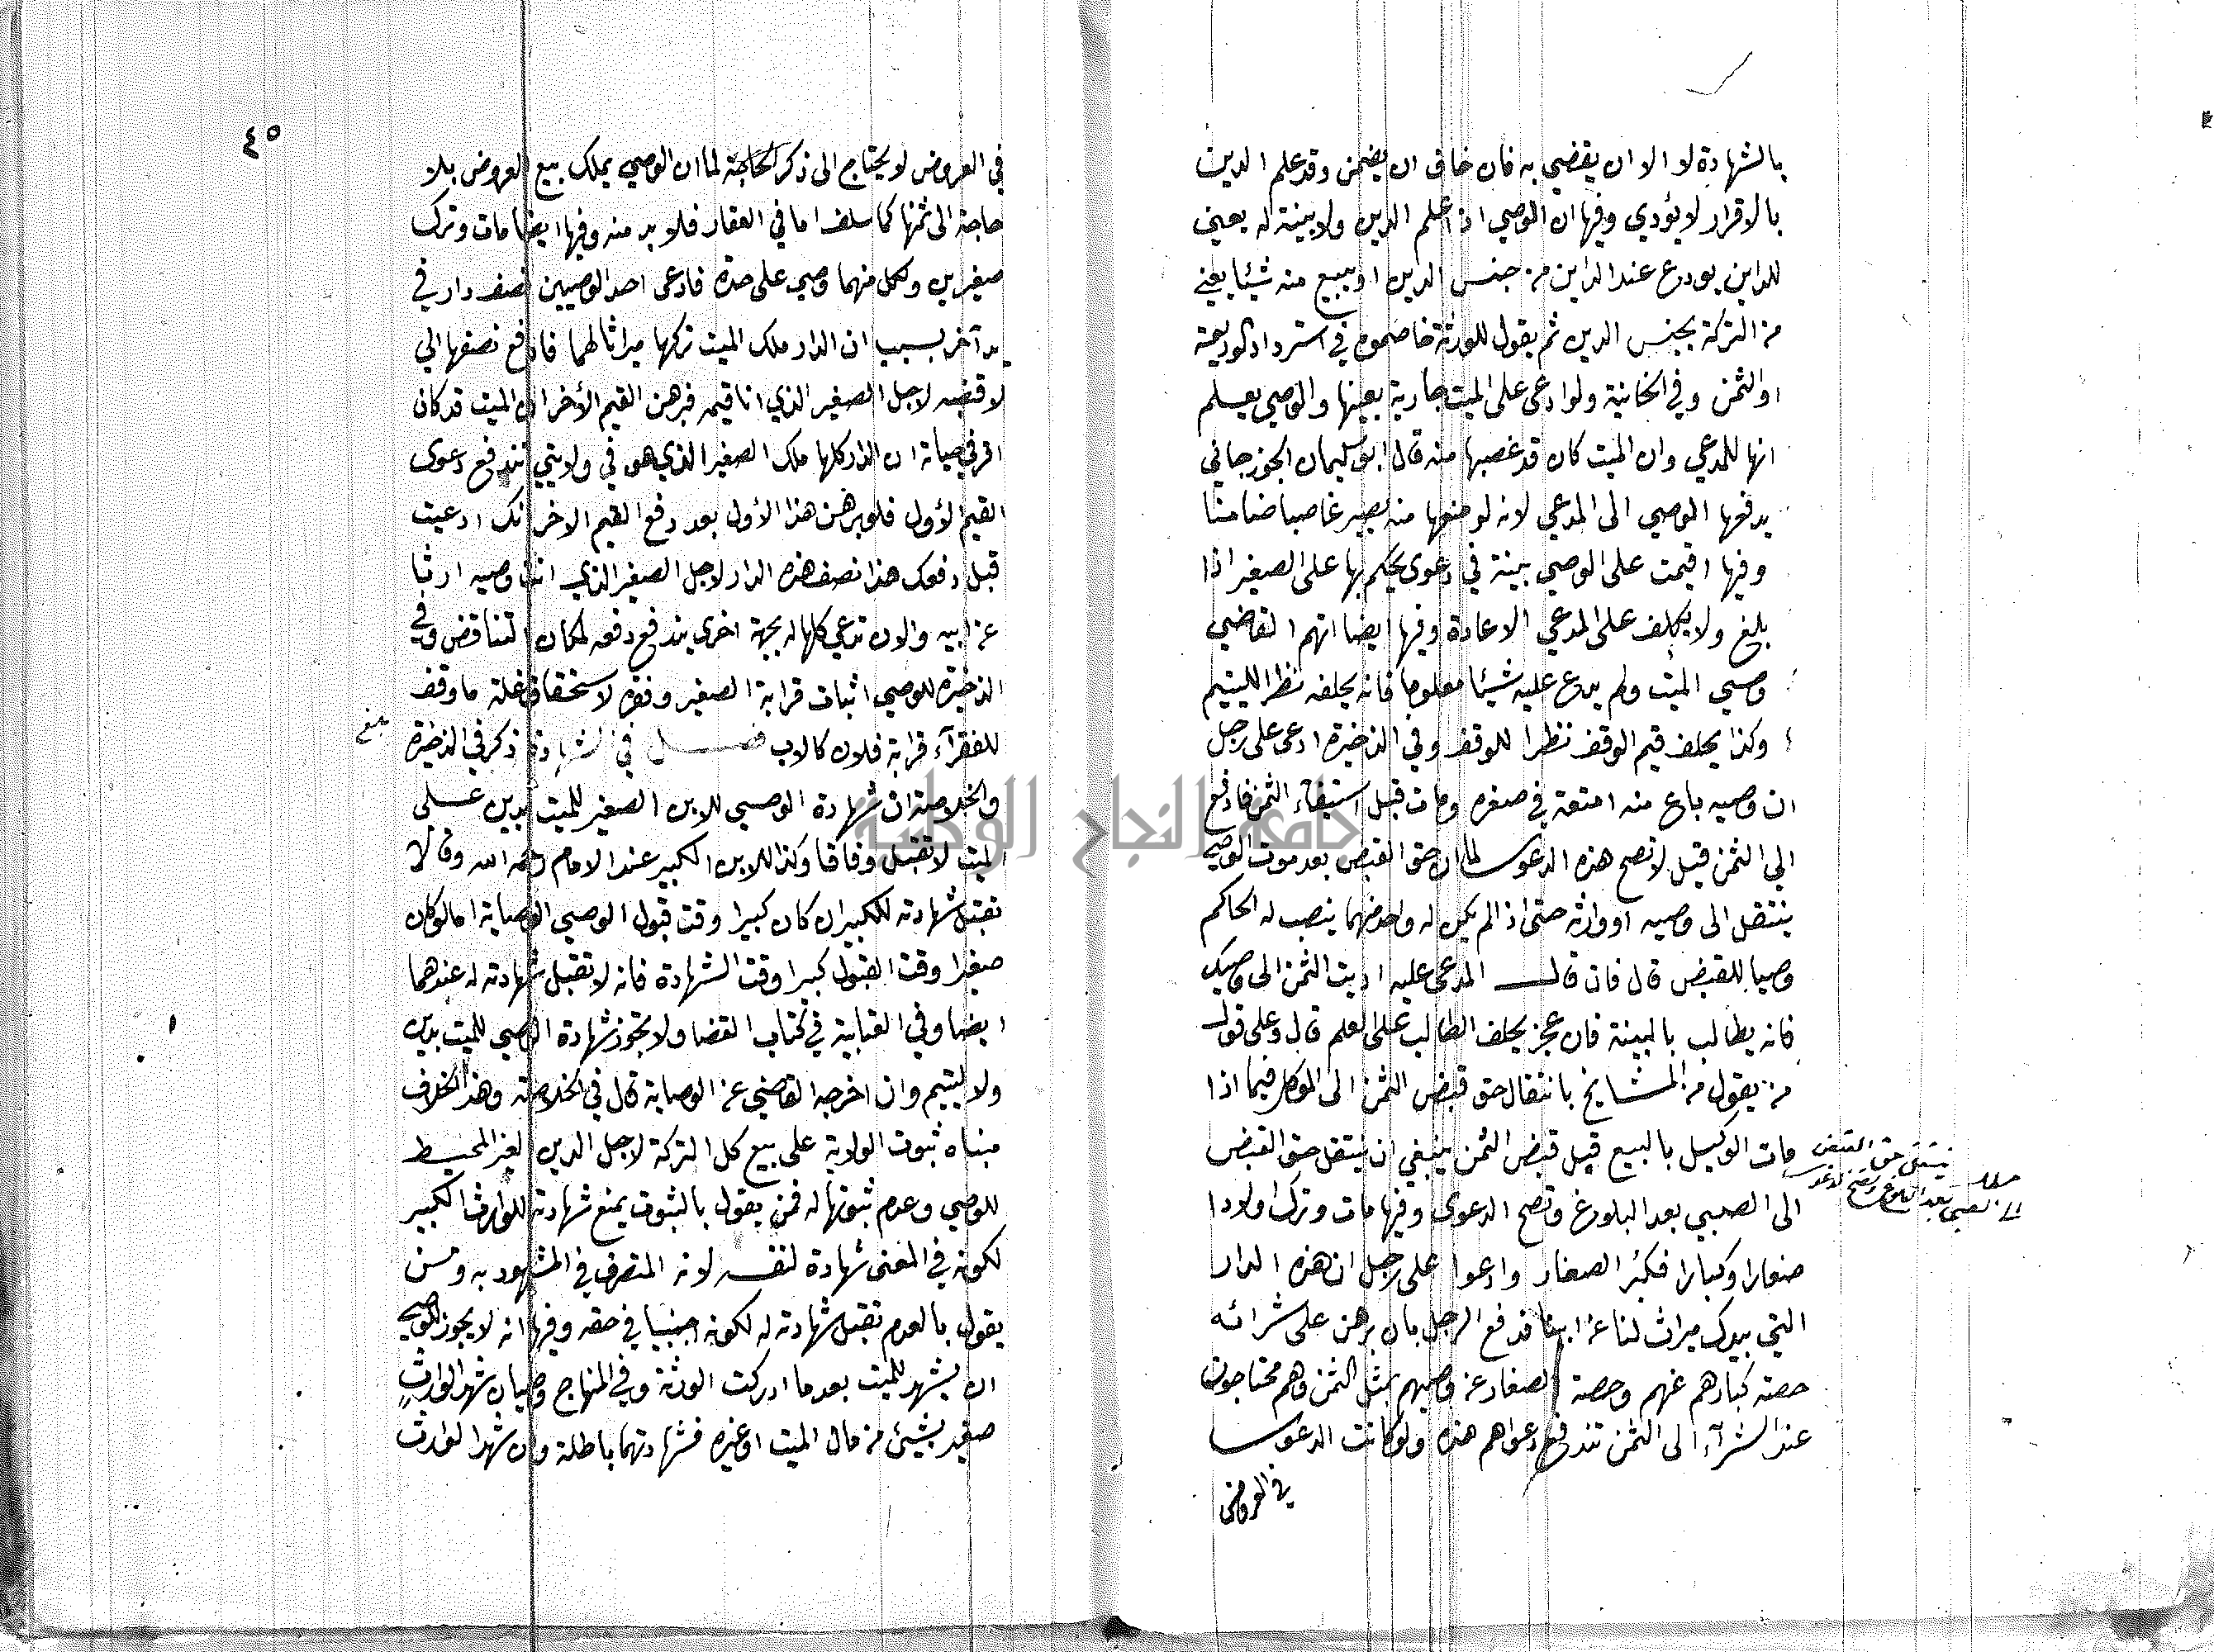 بالشهادة لا الا ان يقضي به فان خاف ان يضمن وقد علم الدين
بالاقرار لا يؤدي وفيها ان الوصي اذا علم الدين ولا بينة له يعني
للداين يودع عند الداين من جنس الدين او يبيع منه شيئا يعني
من التركة بجنس الدين ثم يقول للورثة خاصموه في استرداد الوديعة
او الثمن وفي الخانية ولو ادعى على الميت جارية بعينها والوصي يعلم
انها للمدعي وان الميت كان قد غصبها منه قال ابو سليمان الجوزجاني
يدفعها الوصي الى المدعي لانه لو منعها منه يصير غاصبا ضامنا
وفيها اقيمت على الوصي بينة في دعوى يحكم بها على الصغير اذا
بلغ ولا يكلف على المدعي الاعادة وفيها ايضا اتهم القاضي
وصي الميت ولم يدع عليه شيئا معلوما فانه يحلفه نظرا لليتيم
وكذا يحلف قيم الوقف نظرا للوقف وفي الذخيرة ادعى على رجل
ان وصيه باع منه امتعة في صغره ومات قبل استيفاء الثمن فادفع
الي الثمن قيل لا تصح هذه الدعوى لما ان حق القبض بعد موت الوصي
ينتقل الى وصيه او وارثه حتى اذا لم يكن له واحد منهما ينصب له الحاكم
وصيا للقبض قال فان قال المدعى عليه اديت الثمن الى وصيك
فانه يطالب بالبينة فان عجز يحلف الطالب على العلم قال وعلى قول
من يقول من المشايخ بانتقال حق قبض الثمن الى الموكل فيما اذا
مات الوكيل بالبيع قبل قبض الثمن ينبغي ان ينتقل حق القبض
الى الصبي بعد البلوغ وتصح الدعوى وفيها مات وترك اولادا
صغارا وكبارا فكبر الصغار وادعوا على رجل ان هذه الدار
التي بيدك ميراث لنا عن ابينا فدفع الرجل بان برهن على شرائه
حصة كبارهم عنهم وحصة الصغار عن وصيهم بمثل الثمن وهم محتاجون
عند الشرآء الى الثمن تندفع دعواهم هذه ولو كانت الدعوى
في العروض
مطلب ينتقل حق القبض
الى الصبي بعد البلوغ وتصح الدعوى
٤٥
في العروض لا يحتاج الى ذكر الحاجة لما ان الوصي يملك بيع العروض بلا
حاجة الى ثمنها كما سلف اما في العقار فلا بد منه وفيها ايضا مات وترك
صغيرين ولكل منهما وصي على حدة فادعى احد الوصيين نصف دار في
يد آخر بسبب ان الدار ملك الميت تركها ميراثا لهما فادفع نصفها الي
لاقبضه لاجل الصغير الذي انا قيمه فبرهن القيم الأخر ان الميت قد كان
اقر في حياته ان الدار كلها ملك الصغير الذي هو في ولايتي تندفع دعوى
القيم الأول فلو برهن هذا الأول بعد دفع القيم الاخر انك ادعيت
قبل دفعك هذا نصف هذه الدار لاجل الصغير الذي انت وصيه ارثا
عن ابيه والان تدعي كلها له بجهة اخرى يندفع دفعه لمكان التناقض وفي
الذخيرة للوصي اثبات قرابة الصغير وفقره لاستحقاق غلة ما وقف
للفقرآء قرابة فلان كالاب فصل في الشهادة ذكر في الذخيرة
بلغ
والخلاصة ان شهادة الوصي للابن الصغير للميت بدين على
الميت لا تقبل وفاقا وكذا للابن الكبير عند الامام رحمه الله وقالا
تقبل شهادته للكبير ان كان كبيرا وقت قبول الوصي الوصاية اما لو كان
صغيرا وقت القبول كبيرا وقت الشهادة فانه لا تقبل شهادته له عندهما
ايضا وفي العتابية في كتاب القضا ولا تجوز شهادة الوصي للميت بدين
ولا لليتيم وان اخرجه القاضي عن الوصاية قال في الخلاصة وهذا الخلاف
مبناه ثبوت الولاية على بيع كل التركة لاجل الدين لغير المحيط
للوصي وعدم ثبوتها له فمن يقول بالثبوت يمنع شهادته للوارث الكبير
لكونه في المعنى شهادة لنفسه لانه المتصرف في المشهود به ومن
يقول بالعدم تقبل شهادته له لكونه اجنبيا في حقه وفيها انه لا يجوز للوصي
ان يشهد للميت بعد ما ادركت الورثة وفي المنهاج وصيان شهدا لوارث
صغير بشيئ من مال الميت او غيره فشهادتهما باطلة وان شهدا لوارث
جامعة النجاح الوطنية